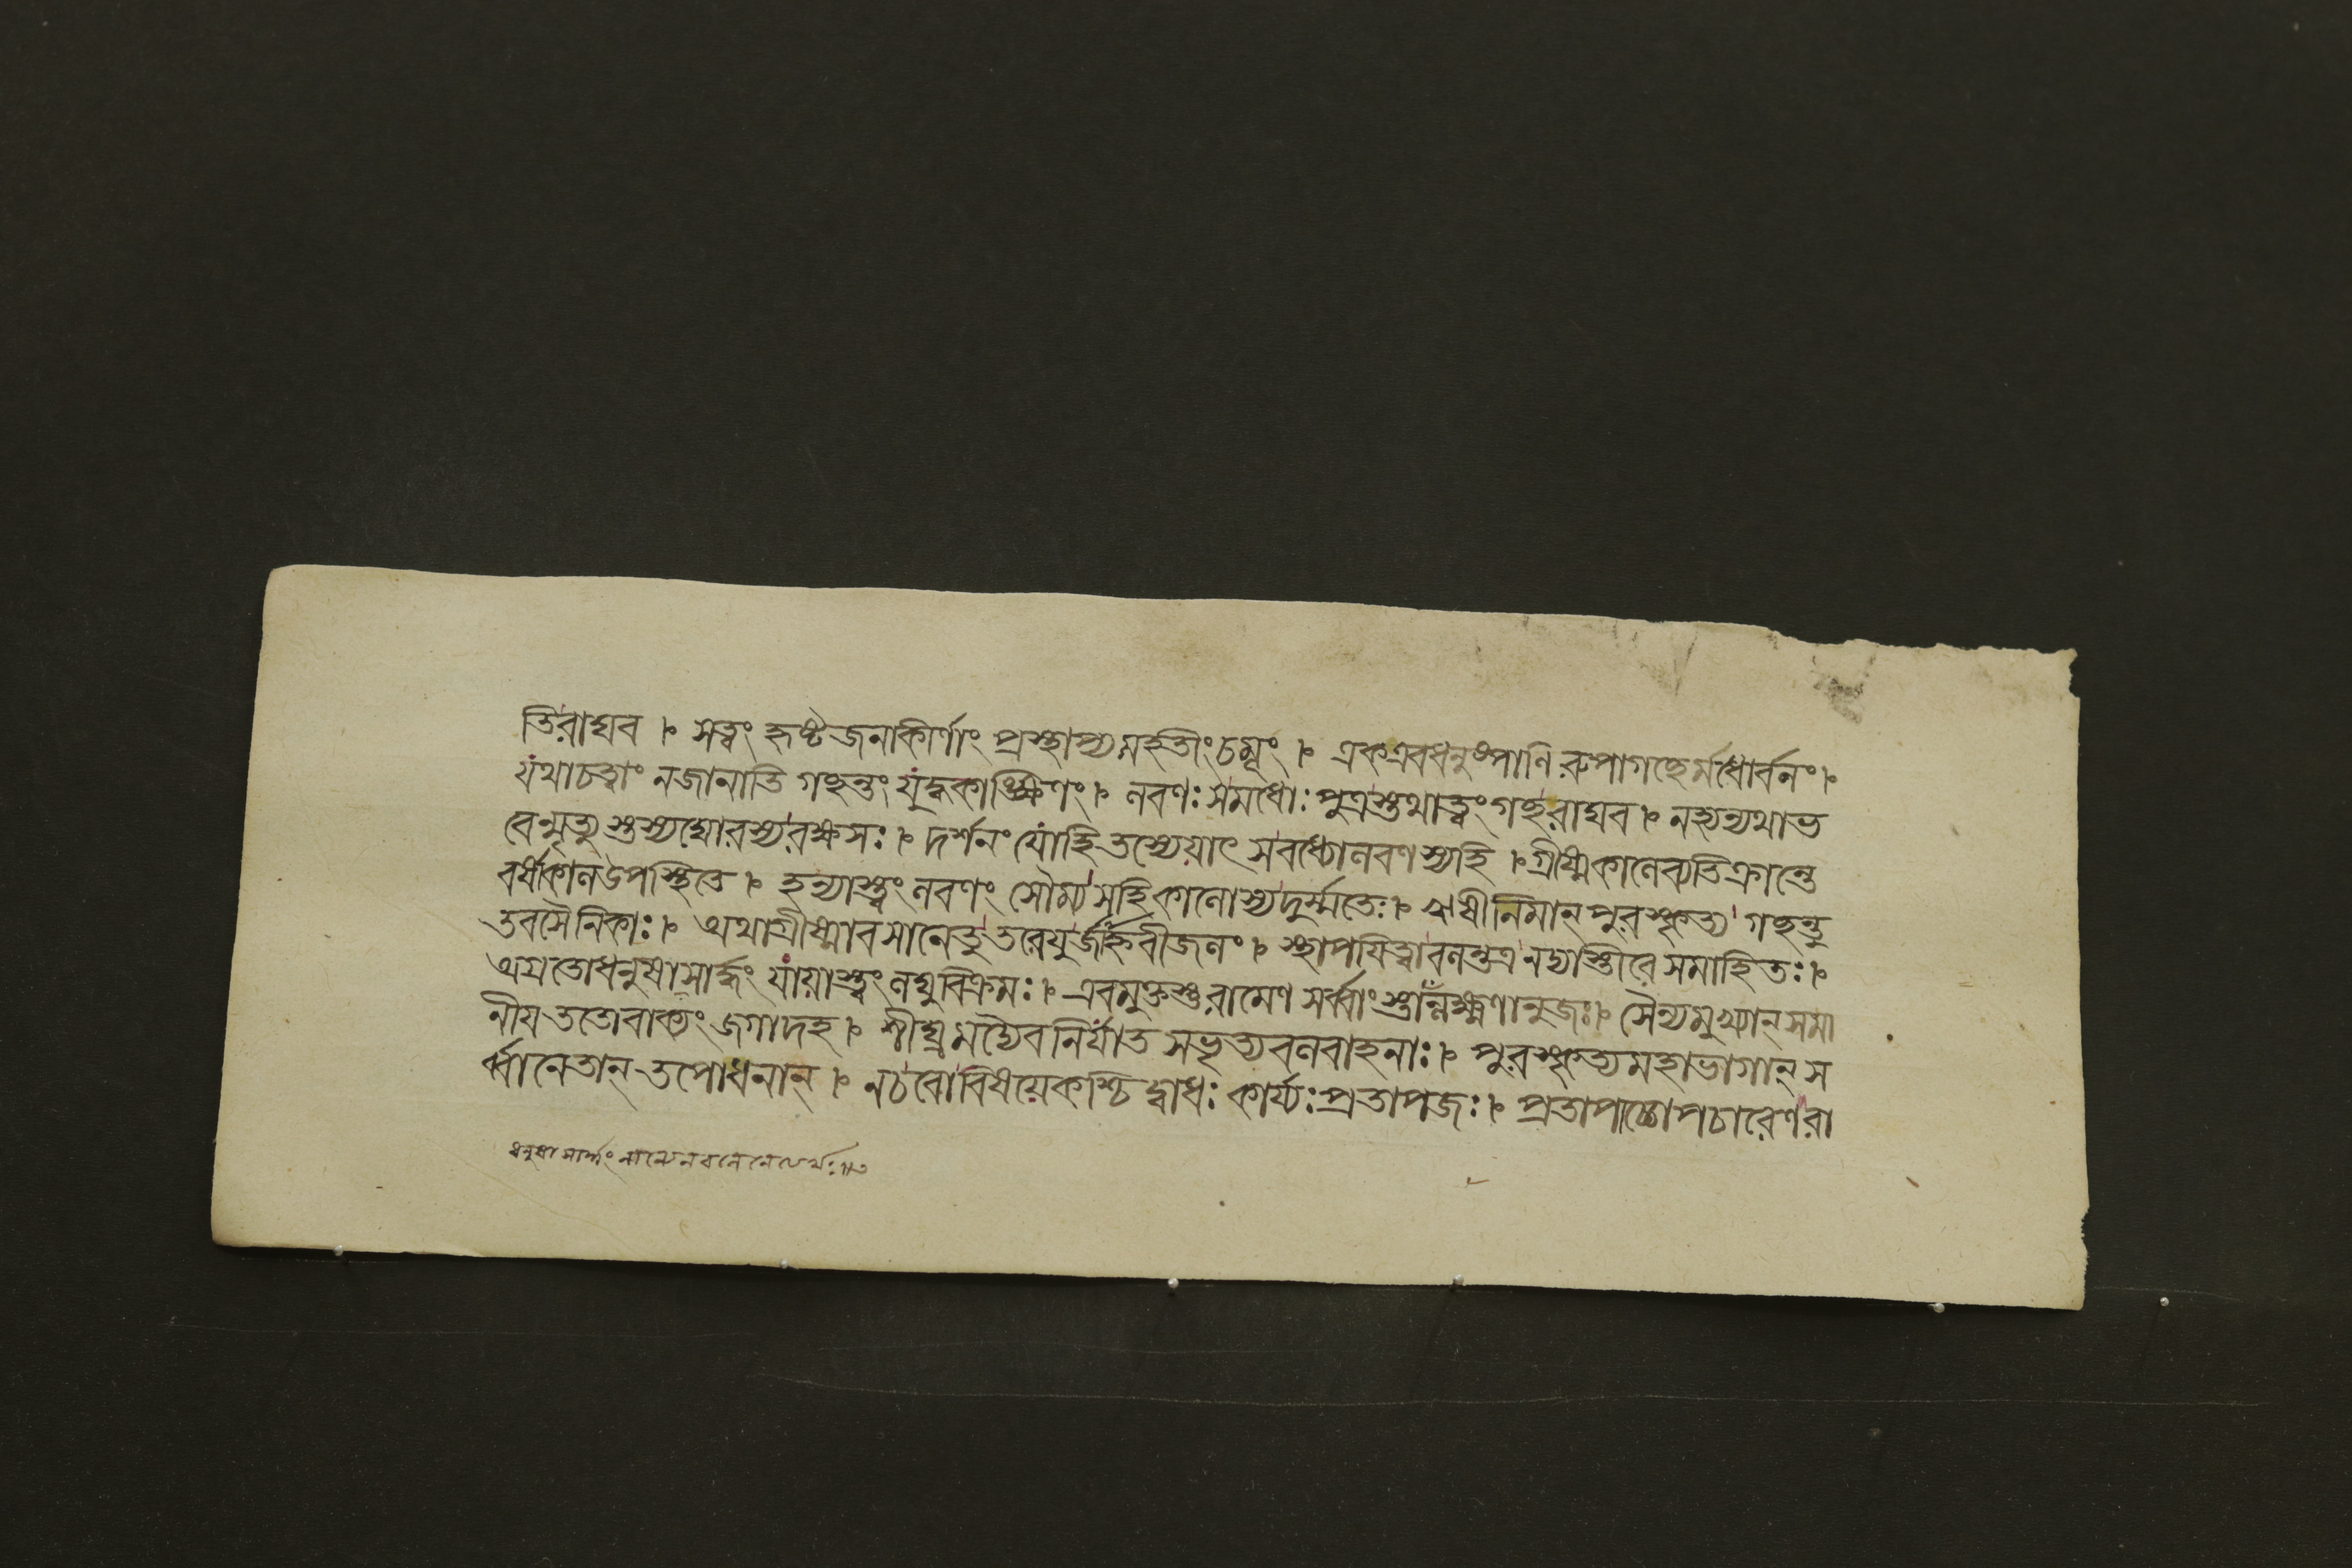 তিরাঘব । সত্বং হৃষ্টজনাকীর্ণাং প্রস্থাপ্যমহতীংচমূং । একএবধনুষ্পাণিরুপাগচ্ছের্মধোর্বনং ।
যথাচত্বাং নজানাতি গচ্ছন্তং যুদ্ধকাঙ্ক্ষিণং । লবণঃসমধোঃপুত্রস্তথাত্বংগচ্ছরাঘব । নহ্যন্যথাভ
বেন্মৃত্যুস্তস্যঘোরস্যরক্ষসঃ । দর্শনংযোহিতস্যেয়াৎ সবধ্যোলবণস্যহি । গ্রীষ্মকালেব্যতিক্রান্তে
বর্ষাকালউপস্থিতে । হন্যাস্ত্বংলবণং সৌম্যসহিকালোস্যদুর্ম্মতেঃ । ঋষীনিমান্ পুরস্কৃত্য গচ্ছন্তু
তবসৈনিকাঃ । যথাগ্রীষ্মাবসানেতুতরেযুর্জাহ্নবীজলং । স্থাপযিত্বাবলন্তত্রনদ্যাস্তীরেসমাহিতঃ ।
অগ্রতোধনুষাসার্দ্ধং যায়াস্ত্বংলঘুবিক্রমঃ । এবমুক্তস্তুরামেণ সর্ব্বাংস্তাঁল্লক্ষ্মণানুজঃ । সৈন্যমুখ্যান্ সমা
নীয ততোবাক্যংজগাদহ । শীঘ্রমদ্যৈবনির্যাত সভৃত্যবলবাহনাঃ । পুরস্কৃত্যমহাভাগান্ স
র্ব্বানেতান্ তপোধনান্ । নচবোবিষয়েকশ্চিদ্বাধঃকার্য্যঃপ্রতাপজঃ । প্রতাপাচ্চোপচারেণরা
ধনুষা সার্দ্ধং